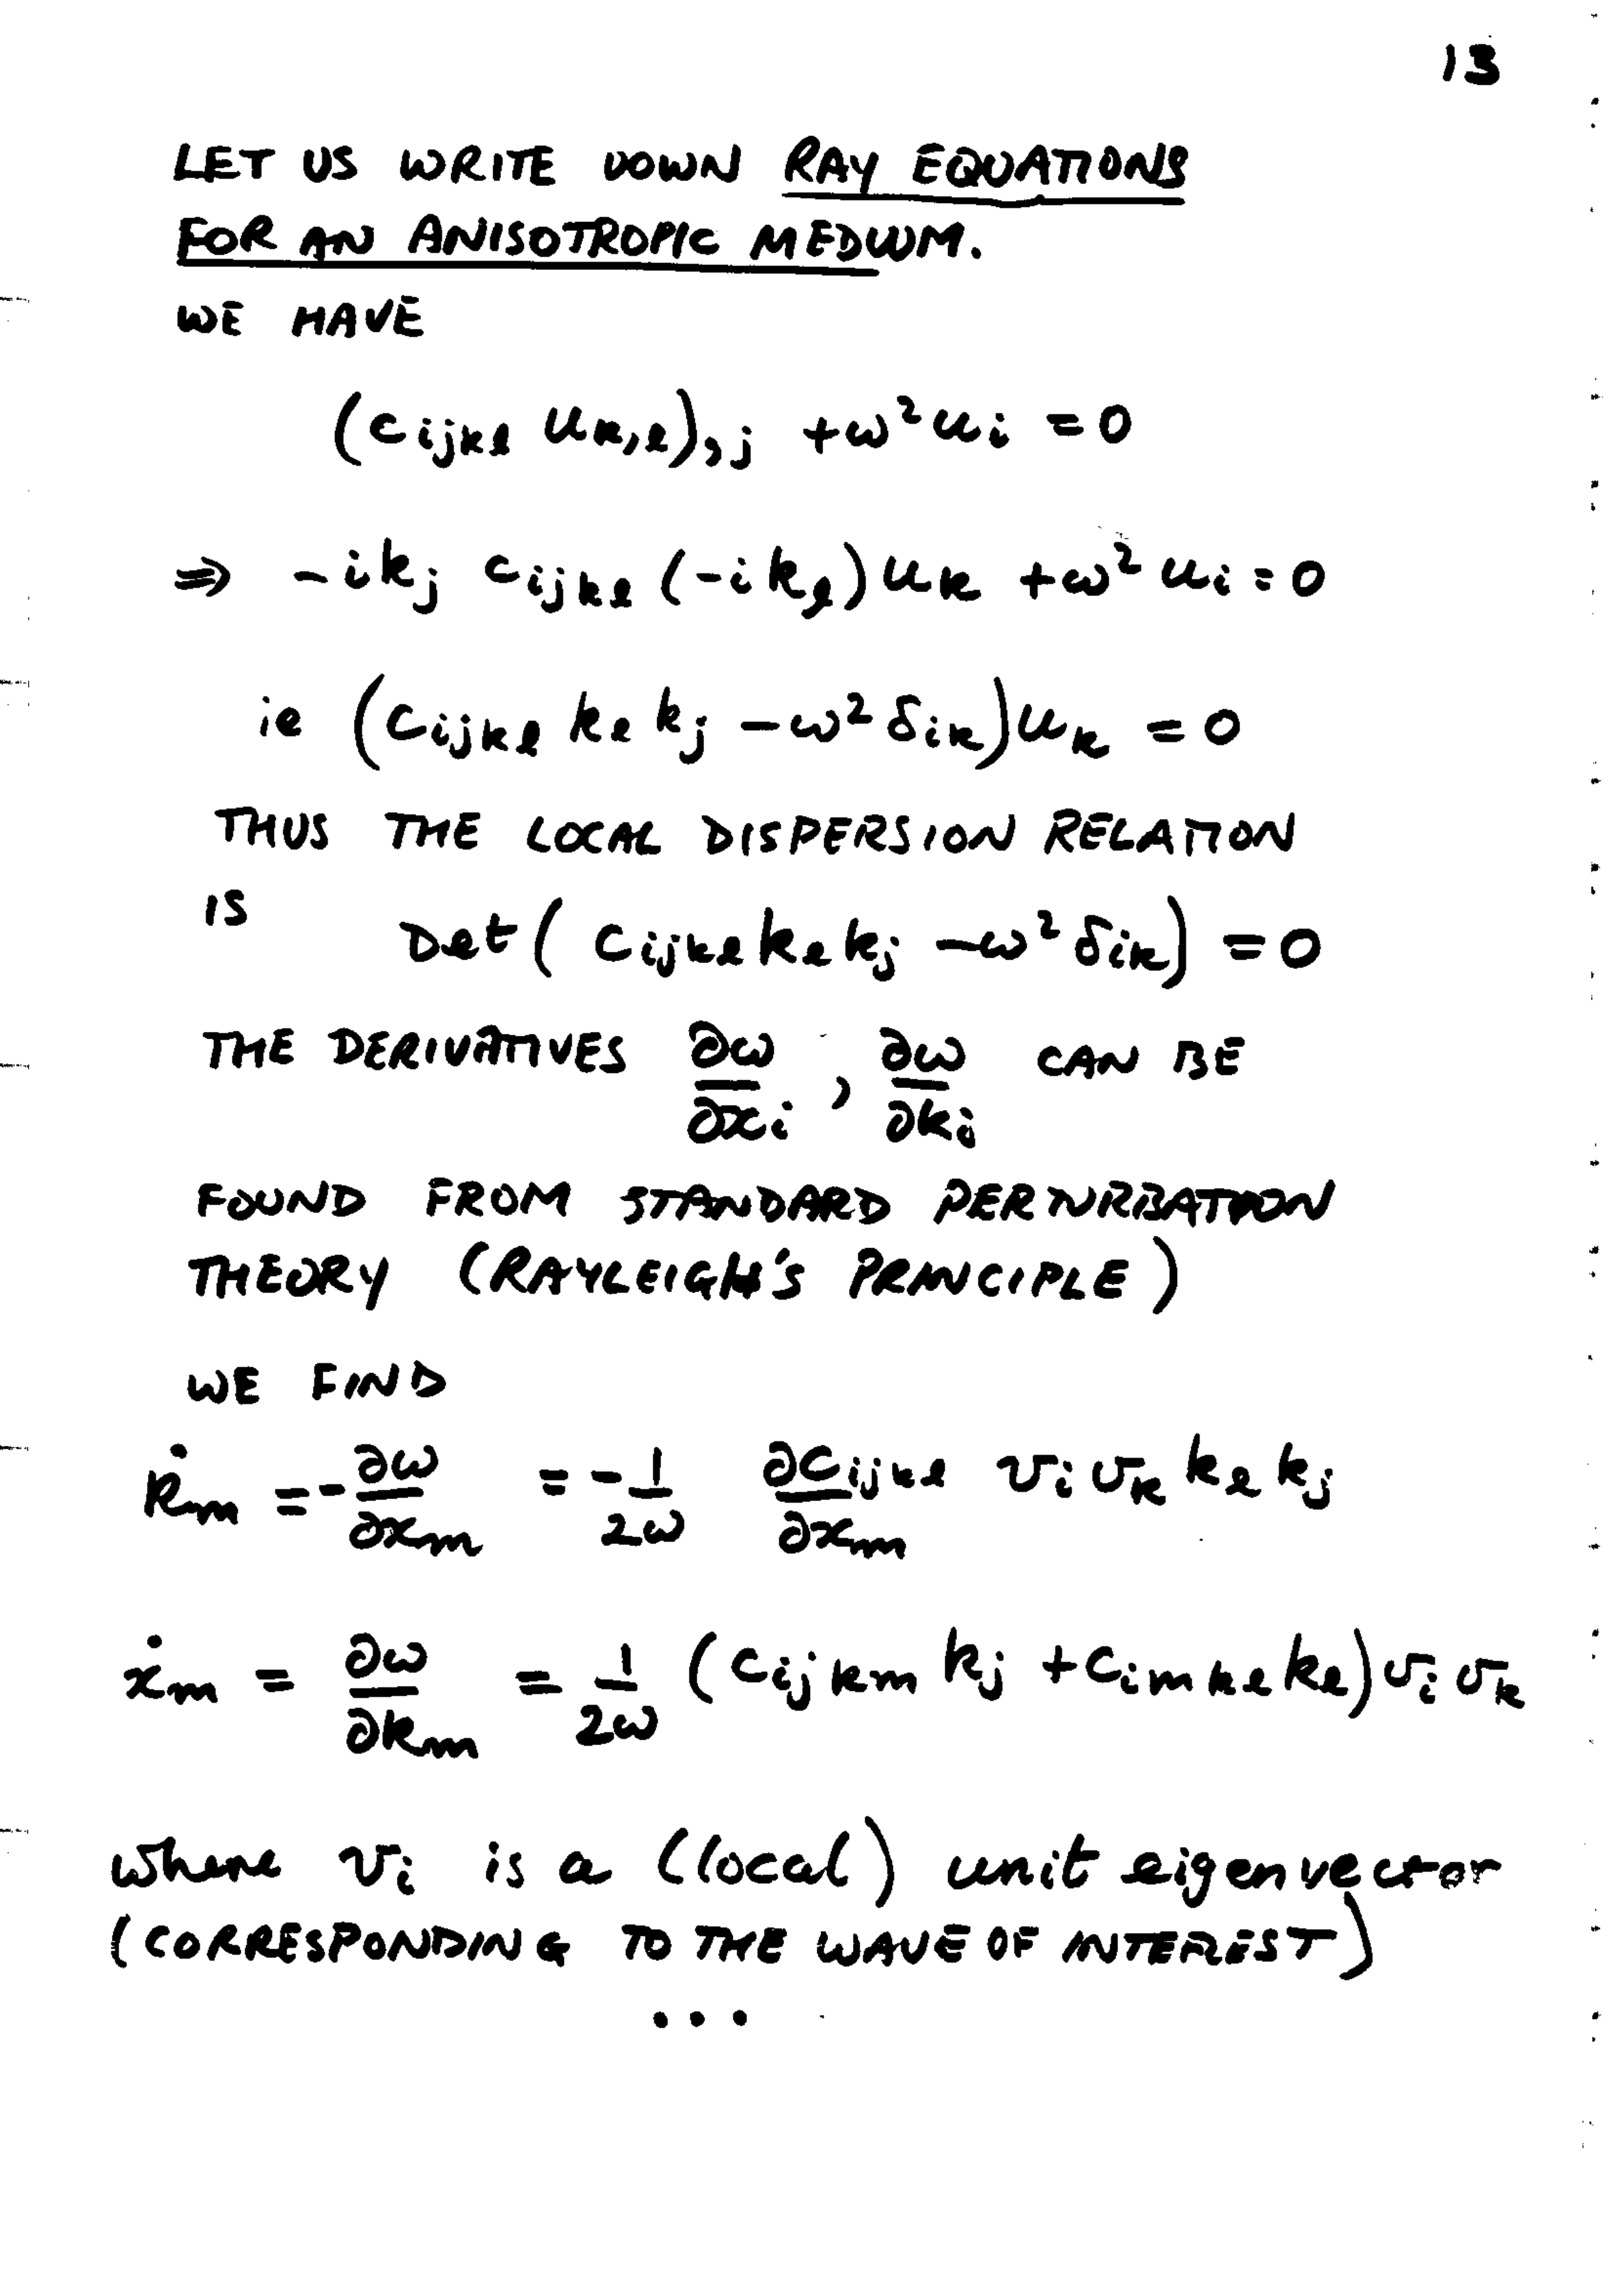 13
LET US WRITE DOWN RAY EQUATIONS
FOR AN ANISOTROPIC MEDIUM.
WE HAVE
(c_{ijkl} u_{k,l})_{,j} + ω² u_i = 0
⇒ -ik_j c_{ijkl} (-ik_l) u_k + ω² u_i = 0
ie (c_{ijkl} k_l k_j - ω² δ_{ik}) u_k = 0
THUS THE LOCAL DISPERSION RELATION
IS Det( c_{ijkl} k_l k_j - ω² δ_{ik}) = 0
THE DERIVATIVES ∂ω/∂x_i , ∂ω/∂k_i CAN BE
FOUND FROM STANDARD PERTURBATION
THEORY (RAYLEIGH'S PRINCIPLE)
WE FIND
k̇_m = -∂ω/∂x_m = -1/2ω ∂c_{ijkl}/∂x_m v_i v_k k_l k_j
ẋ_m = ∂ω/∂k_m = 1/2ω (c_{ijkm} k_j + c_{imkl} k_l) v_i v_k
where v_i is a (local) unit eigenvector
(CORRESPONDING TO THE WAVE OF INTEREST)
...